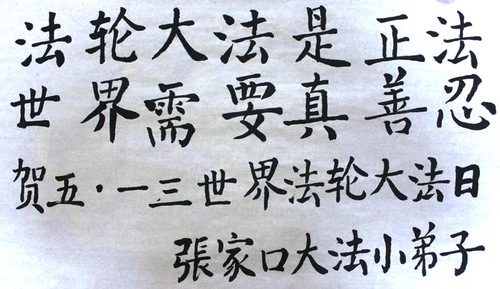 法轮大法是正法
世界需要真善忍
贺五·一三世界法轮大法日
張家口大法小弟子